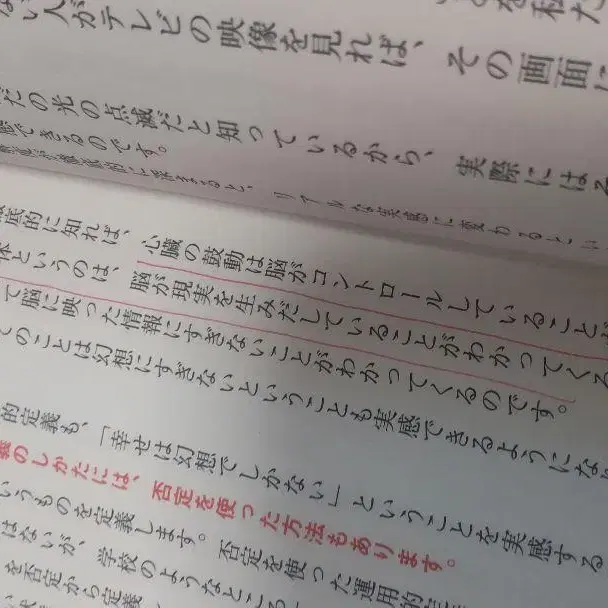 を私た
ない人がテレビの映像を見れば、その画面に
だの光の点滅だと知っているから、実際には
できるのです。
が徹底的に深まると、リアルな実感に変わるとい
底的に知れば、心臓の鼓動は脳がコントロールしていることが
体というのは、脳が現実を生みだしていることがわかってくる
て脳に映った情報にすぎないことがわかってくるのです。
てのことは幻想にすぎないということも実感できるようにな
的定義も、「幸せは幻想でしかない」ということを実感する
義のしかたには、否定を使った方法もあります。
いうものを定義します。否定を使った運用的定
はないが、学校のようなところ
を否定から定義